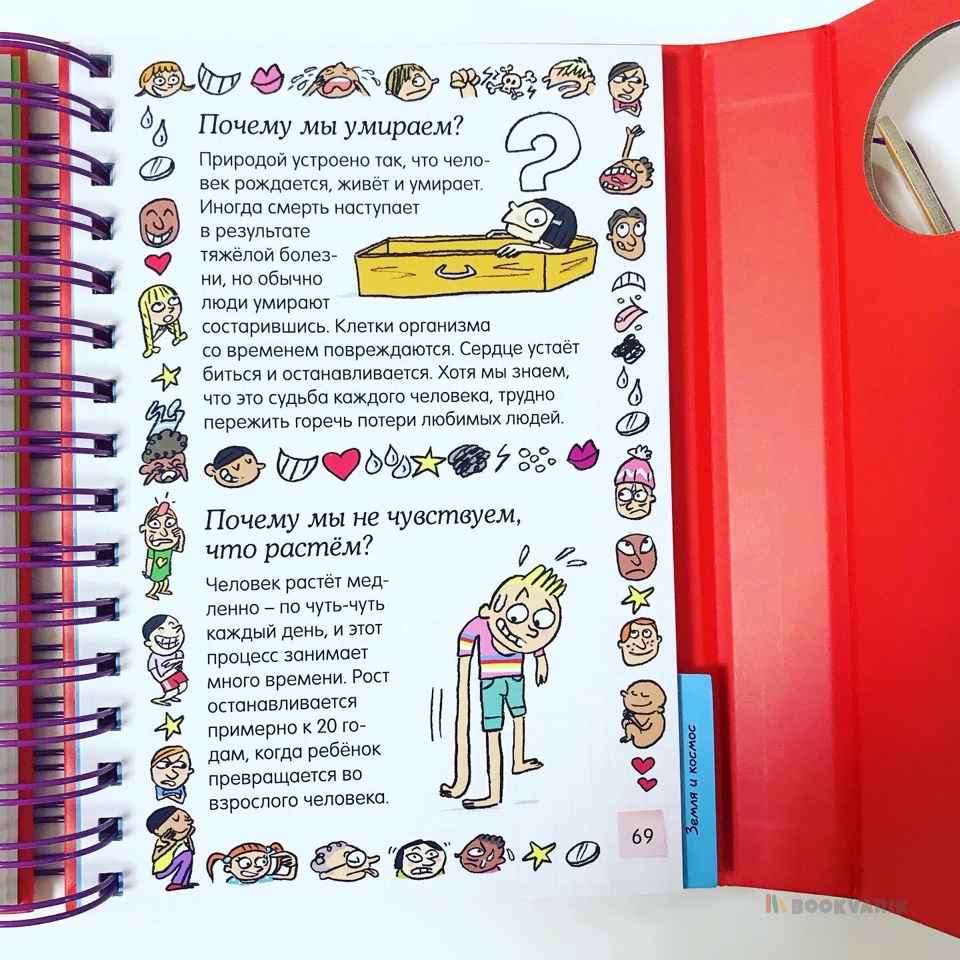 Почему мы умираем?
Природой устроено так, что чело-
век рождается, живёт и умирает.
Иногда смерть наступает
в результате
тяжёлой болез-
ни, но обычно
люди умирают
состарившись. Клетки организма
со временем повреждаются. Сердце устаёт
биться и останавливается. Хотя мы знаем,
что это судьба каждого человека, трудно
пережить горечь потери любимых людей.
Почему мы не чувствуем,
что растём?
Человек растёт мед-
ленно – по чуть-чуть
каждый день, и этот
процесс занимает
много времени. Рост
останавливается
примерно к 20 го-
дам, когда ребёнок
превращается во
взрослого человека.
69
Земля и космос
BOOKVARIK